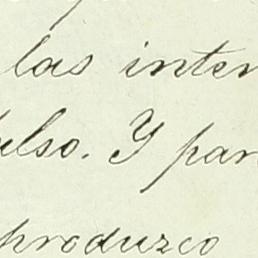 las inter
ulso. Y par
produzco